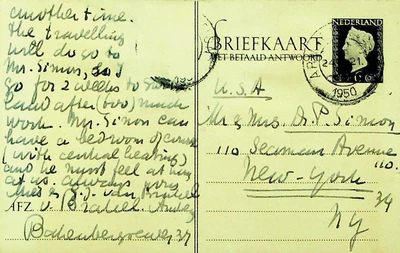 another time.
The travelling
will do go to
Mr. Simon, so I
go for 2 weeks to
land after (too) much
work. Mr. Simon can
have a bedroom of course
(with central heating)
and he must feel at home
at us. always yours
AFZ. v. Brakel.
BRIEFKAART
MET BETAALD ANTWOORD
NEDERLAND
1950
U.S.A
Mr & Mrs. D. P. Simon
110 Seaman Avenue
"110."
New-York
34
NY